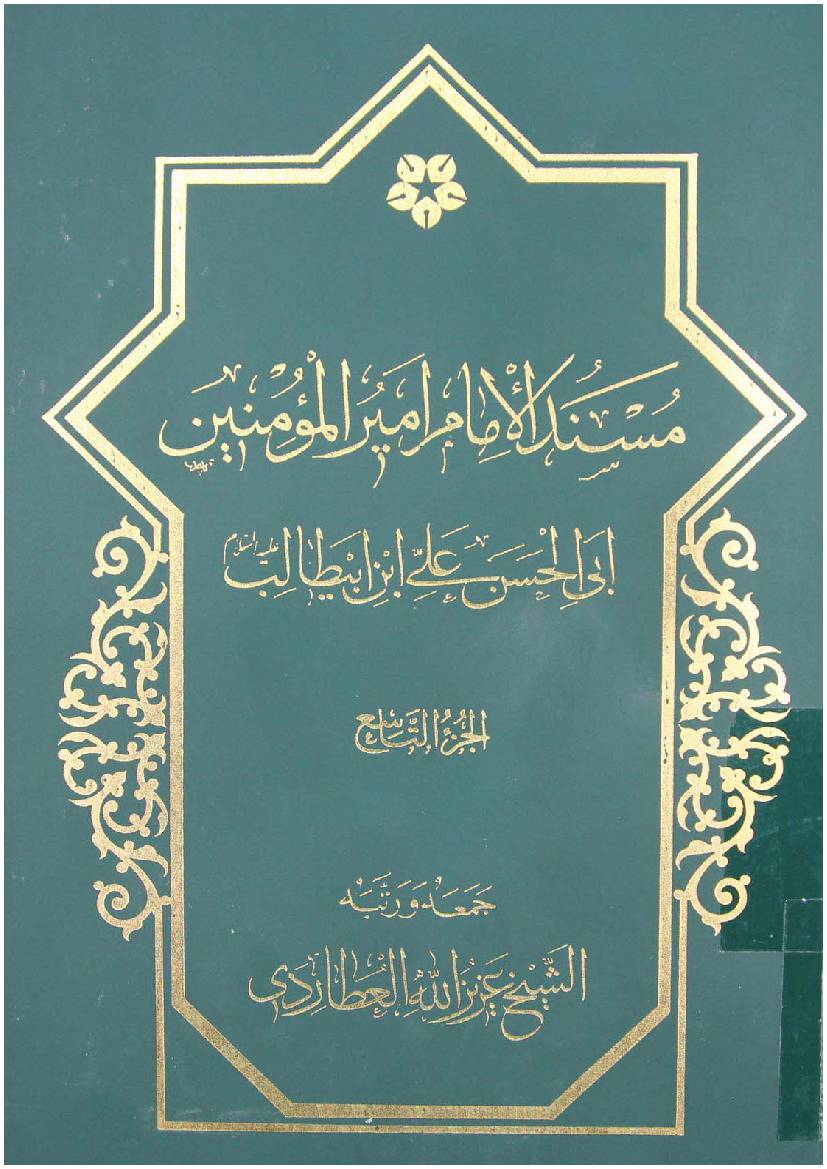 مُسْنَدُ الْإِمَامِ أَمِيرِ الْمُؤْمِنِينَ
أَبِي الْحَسَنِ عَلِيِّ ابْنِ أَبِيطَالِبٍ عليه السلام
الْجُزْءُ التَّاسِعُ
جَمَعَهُ وَرَتَّبَهُ
الشَّيْخُ عَزِيزُ اللهِ الْعُطَارِدِي